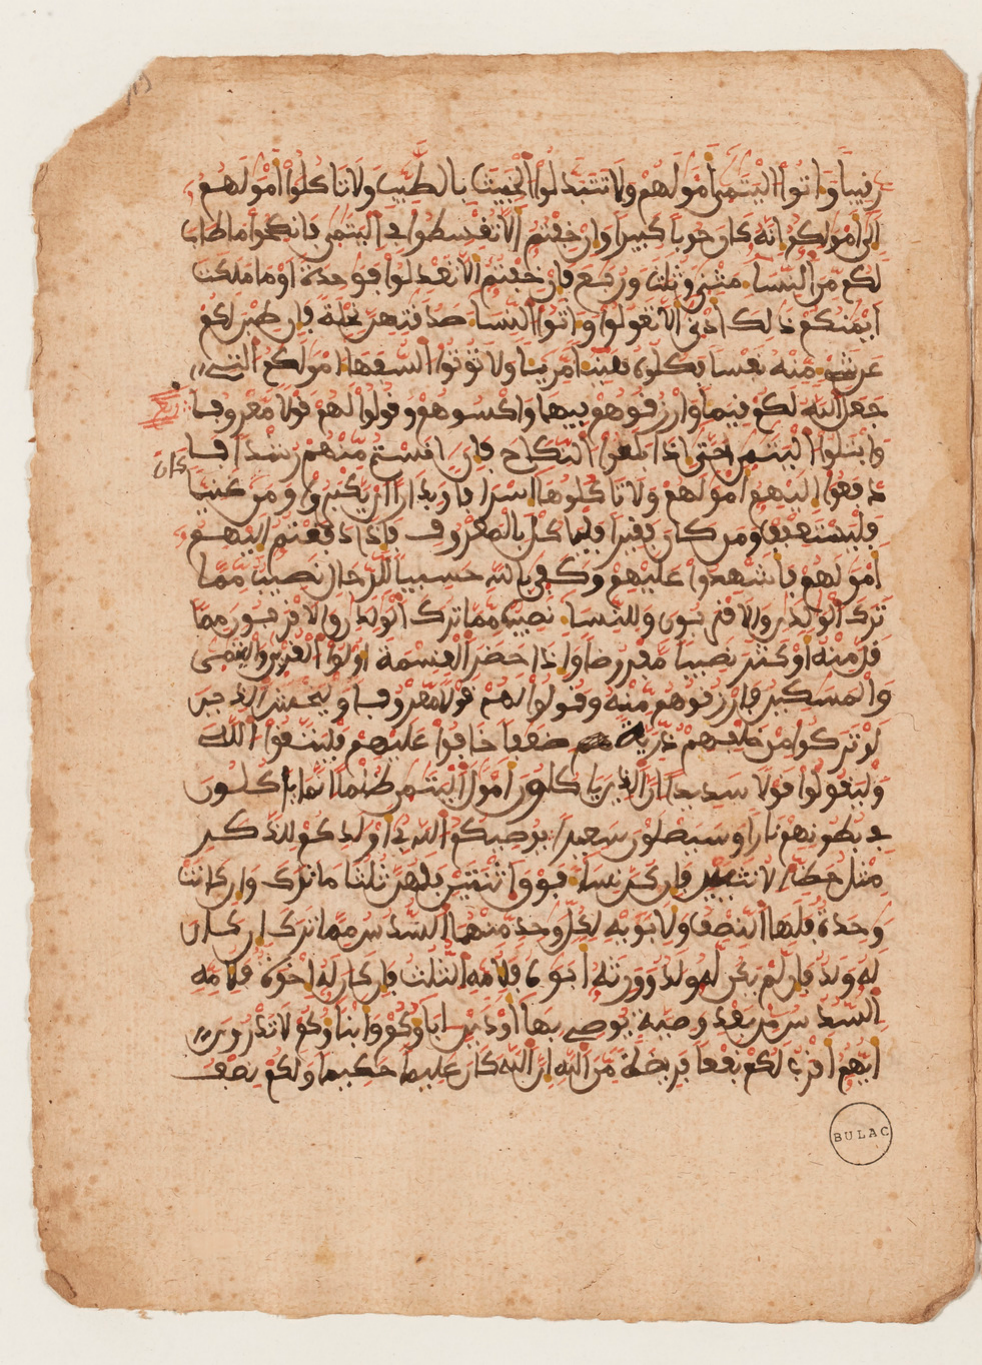 رقيبا وَاتوا اليتمى أمولهم ولا تتبدلوا الخبيث بالطيب ولا تاكلوا أمولهم
إلى أمولكم إنه كان حوبا كبيرا وإن خفتم ألا تقسطوا في اليتمى فانكحوا ما طاب
لكم من النسا مثنى وثلث وربع فإن خفتم ألا تعدلوا فوحدة أو ما ملكت
أيمنكم ذلك أدنى ألا تعولوا وَاتوا النسا صدقتهن نحلة فإن طبن لكم
عن شي منه نفسا فكلوه هنيئا مريئا ولا توتوا السفها أمولكم التي
جعل الله لكم قيما وارزقوهم فيها واكسوهم وقولوا لهم قولا معروفا
وابتلوا اليتمى حتى إذا بلغوا النكاح فإن انستم منهم رشدا فا
كان
دفعوا إليهم أمولهم ولا تاكلوها إسرافا وبدارا أن يكبروا ومن غنيا
فليستعفف ومن كان فقيرا فلياكل بالمعروف فإذا دفعتم إليهم
أمولهم فأشهدوا عليهم وكفى بالله حسيبا للرجال نصيب مما
ترك الولدان والاقربون وللنسا نصيب مما ترك الولدان والاقربون مما
قل منه أو كثر نصيبا مفروضا وإذا حضر القسمة أولوا القربى واليتمى
والمسكين فارزقوهم منه وقولوا لهم قولا معروفا وليخش الذين
لو تركوا من خلفهم ذرية ضعفا خافوا عليهم فليتقوا الله
وليقولوا قولا سديدا إن الذين ياكلون أمول اليتمى ظلما إنما ياكلون
في بطونهم نارا وسيصلون سعيرا يوصيكم الله في أولدكم للذكر
مثل حظ الانثيين فإن كن نسا فوق اثنتين فلهن ثلثا ما ترك وإن كانت
وحدة فلها النصف ولابويه لكل وحد منهما السدس مما ترك إن كان
له ولد فإن لم يكن له ولد وورثه أبوه فلامه الثلث فإن كان له إخوة فلامه
السدس من بعد وصية يوصي بها أو دين اباوكم وابناوكم لا تدرون
أيهم أقرب لكم نفعا فريضة من الله إن الله كان عليما حكيما ولكم نصف
BULAC